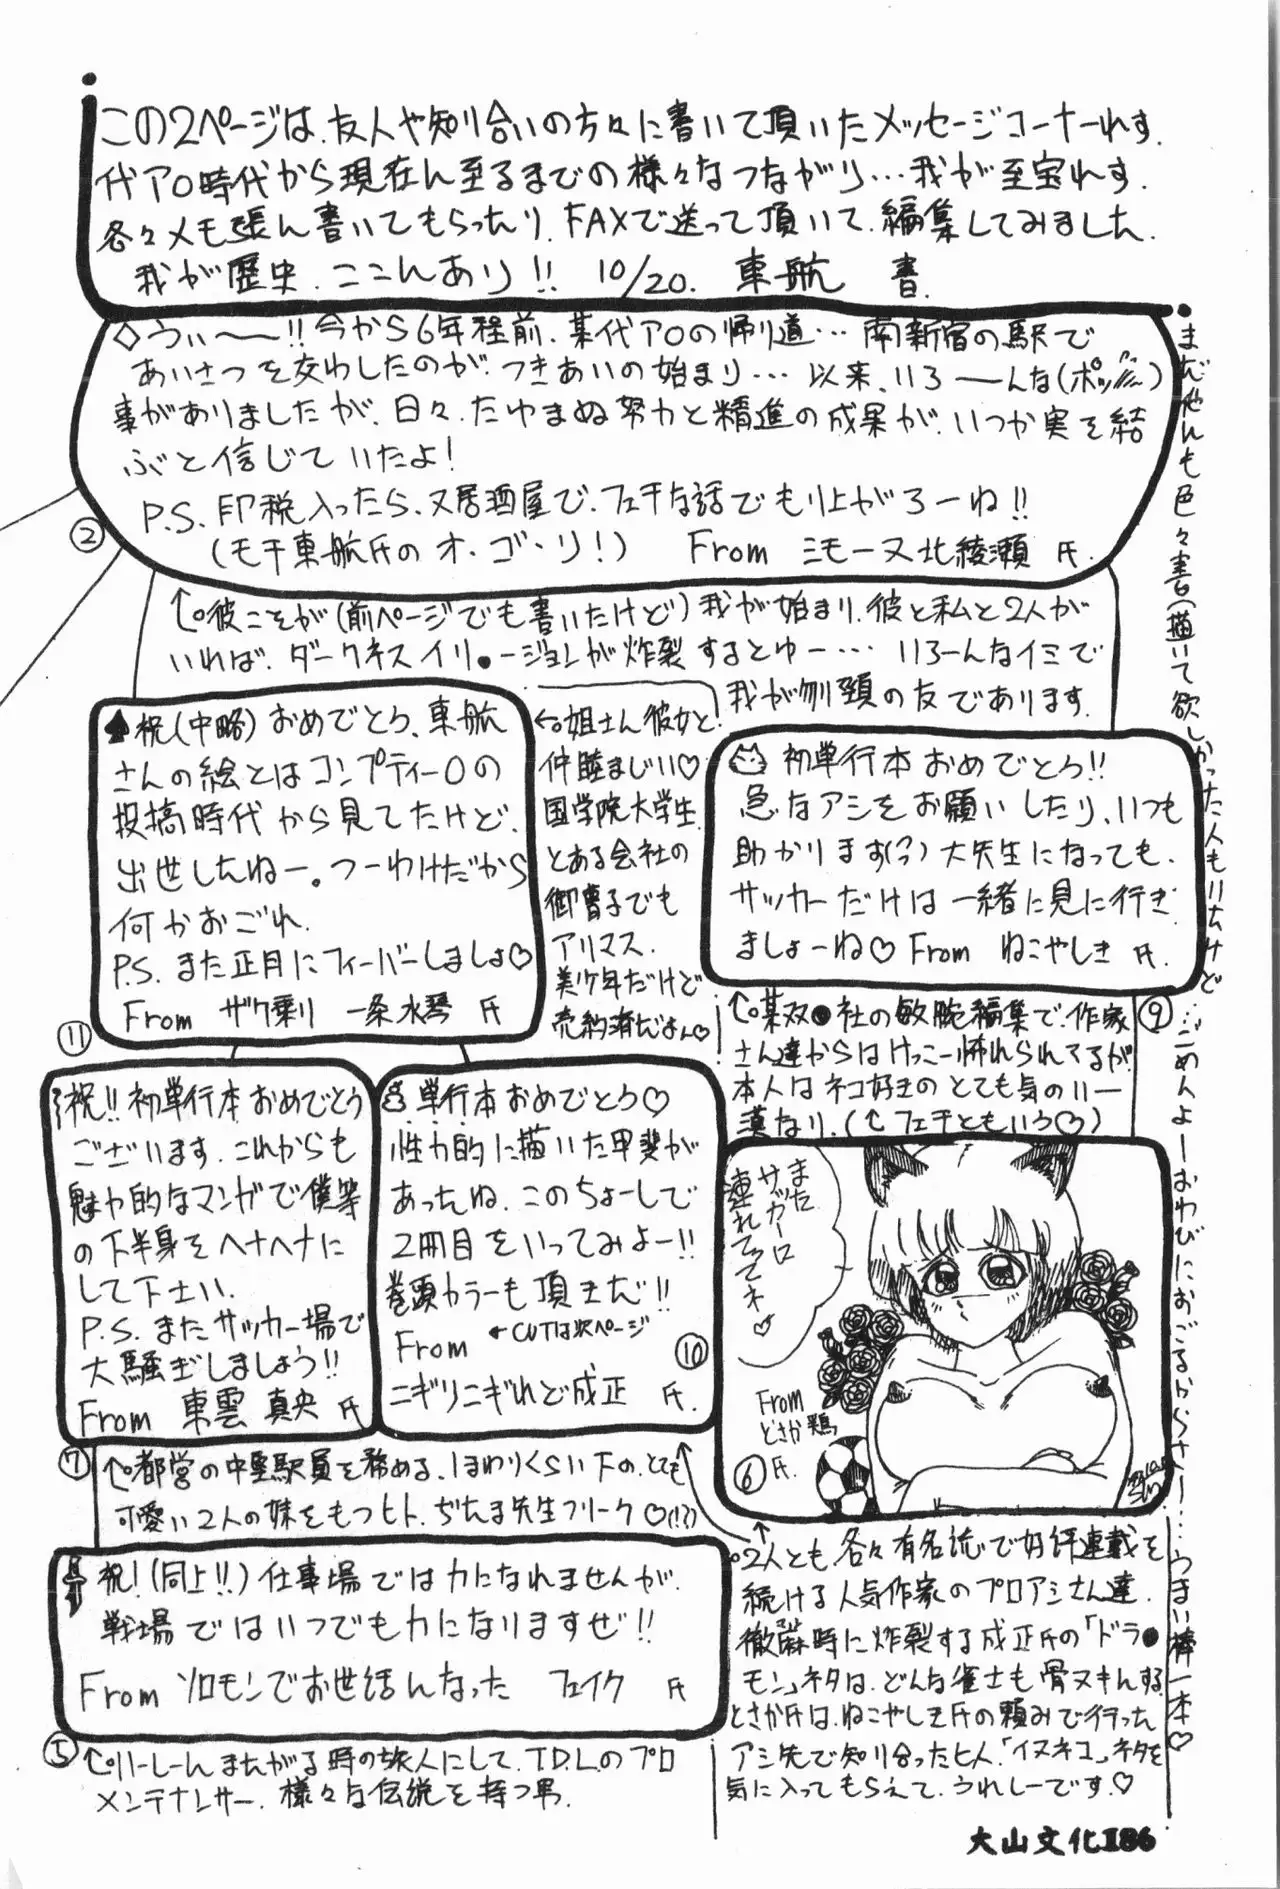 この2ページは、友人や知り合いの方々に書いて頂いたメッセージコーナーれす。
代アO時代から現在ん至るまでの様々なつながり…我が至宝れす。
各々メモ張ん書いてもらったり、FAXで送って頂いて、編集してみました。
我が歴史、ここんあり!! 10/20. 東航 書.
◇うぃ〜〜!!今から6年程前、某代アOの帰り道…南新宿の駅で
あいさつを交わしたのが、つきあいの始まり…以来、いろーーんな(ポッ)
事がありましたが、日々、たゆまぬ努力と精進の成果が、いつか実を結
ぶと信じていたよ!
P.S. 印税入ったら、又居酒屋で、フェチな話でもり上がろーね!!
(モチ東航氏のオ・ゴ・リ!) From ミモーヌ北綾瀬 氏.
②
↑彼こそが(前ページでも書いたけど)我が始まり、彼と私と2人が
いれば、ダークネスイリ●ージョンが炸裂するとゆー…いろーんなイミで
我が刎頚の友であります.
♠祝(中略)おめでとう、東航
さんの絵とはコンプティーOの
投稿時代から見てたけど、
出世したねー。つーわけだから
何かおごれ.
P.S. また正月にフィーバーしましょ♡
From ザク乗り 一条水琴 氏
⑪
←姐さん彼女と
仲睦まじい♡
国学院大学生.
とある会社の
御曹子でも
アリマス.
美少年だけど
売約済だよん♡
初単行本おめでとう!!
急なアシをお願いしたり、いつも
助かります(?)大先生になっても、
サッカーだけは一緒に見に行き
ましょーね♡ From ねこやしき 氏.
⑨
↑某双●社の敏腕編集で、作家
さん達からはけっこー怖れられてるが
本人はネコ好きのとても気のいい
漢なり.(↑フェチともいう♡)
祝!!初単行本おめでとう
ございます.これからも
魅力的なマンガで僕等
の下半身をヘナヘナに
して下さい.
P.S. またサッカー場で
大騒ぎしましょう!!
From 東雲真央 氏
⑦
単行本おめでとう♡
性力的に描いた甲斐が
あったね.このちょーしで
2冊目をいってみよー!!
巻頭カラーも頂きだ!!
From ←CUTは次ページ
ニギリニギれど成正 氏.
⑩
また
サッカーに
連れてってネ♡
From
とさか鶏
氏.
⑥
↑都営の中堅駅員を務める、1まわりくらい下の、とても
可愛い2人の妹をもつヒト、ぢたま先生フリーク♡(!?)
祝!(同上!!)仕事場では力になれませんが、
戦場ではいつでも力になりますぜ!!
From ソロモンでお世話んなった フェイク 氏
⑤
↑りーしーんまたがる時の旅人にして、T.D.L.のプロ
メンテナンサー、様々な伝説を持つ男.
2人とも各々有名誌で好評連載を
続ける人気作家のプロアシさん達.
徹麻時に炸裂する成正氏の「ドラ●
モン」ネタは、どんな雀士も骨ヌキんする.
とさか氏は、ねこやしき氏の頼みで行った
アシ先で知り合ったヒト、「イヌネコ」ネタを
気に入ってもらえて、うれしーです♡
まだ他んも色々書(描)いて欲しかった人もいたけど…ごめんよーおわびにおごるからさー!…うまい棒一本♡
大山文化Ⅱ86